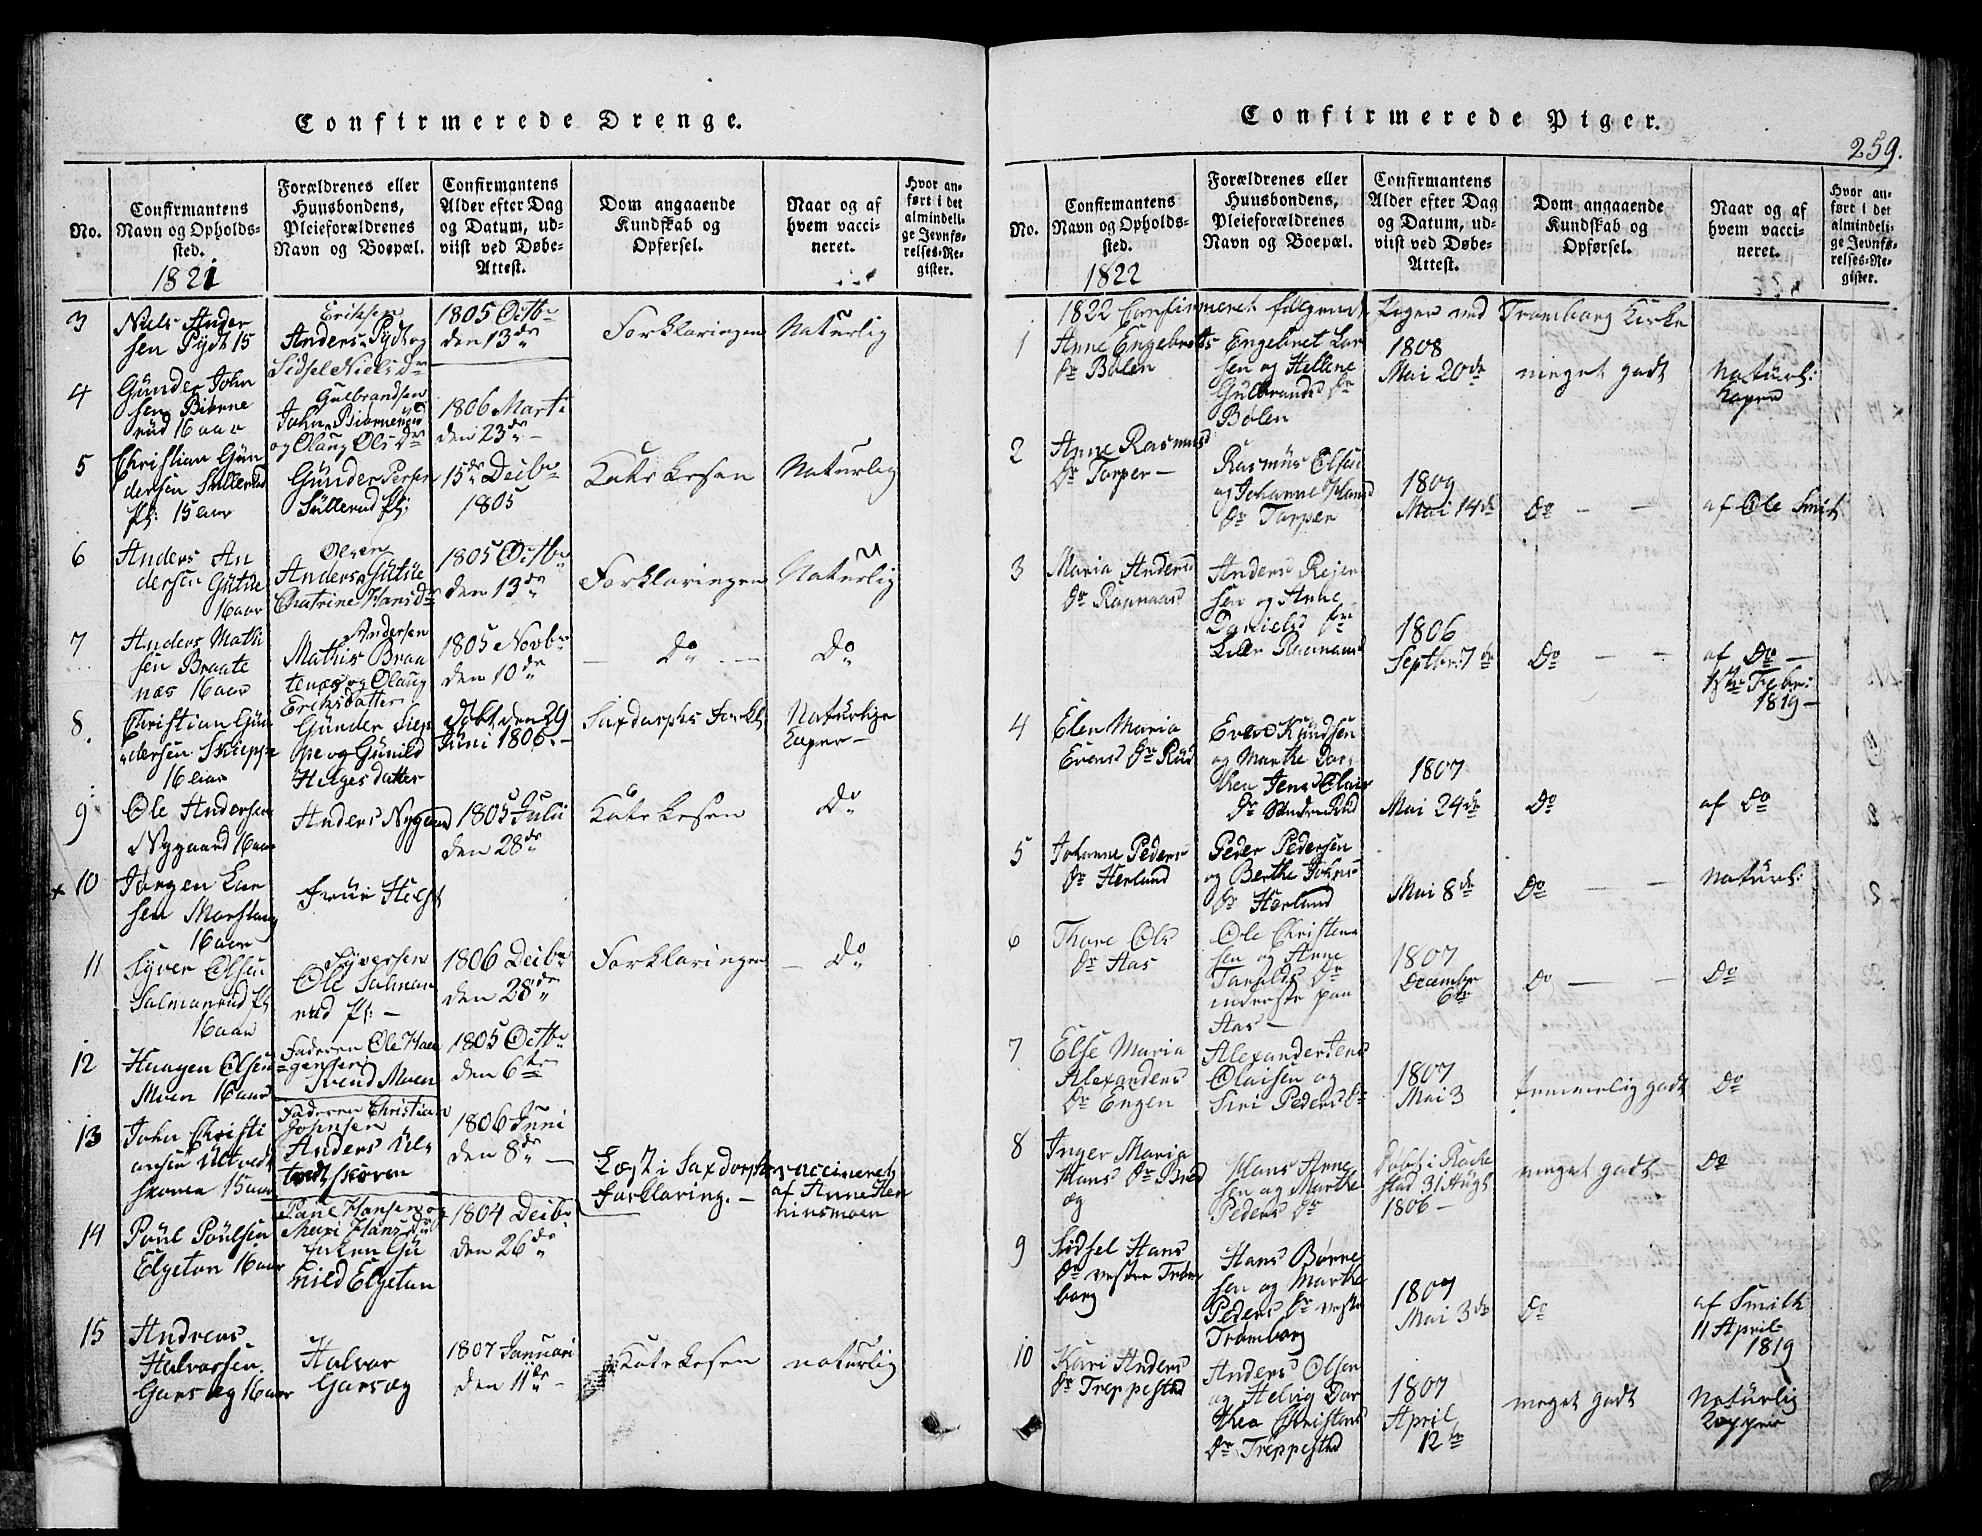 Confirmerede Drenge.
No.
Confirmantens
Navn og Opholds-
sted.
1821
Forældrenes eller
Huusbondens,
Pleieforældrenes
Navn og Boepæl.
Confirmantens
Alder efter Dag
og Datum, ud-
viist ved Døbe-
Attest.
Dom angaaende
Kundskab og
Opførsel.
Naar og af
hvem vacci-
neret.
Hvor an-
ført i det
almindeli-
ge Jevnfø-
relses-Re-
gister.
3
Niels Ander
sen Pydt 15
Eriksen
Anders Pydt og
Sidsel Niels Dr
1805 Octbr
den 13de
Forklaringen
Naturlig
4
Gunder John
sen Biørne
rud 16 aar
Gulbrandsen
John Biørnerud
og Olaug Ols Dr
1806 Marti
den 23de
5
Christian Gun
dersen Sullerud
Pl: 15 aar
Gunder Persen
Sullerud Pl:
15de Deibr
1805
Katekesen
Naturlig
6
Anders An
dersen Gutue
16 aar
Olsen
Anders Gutue
Chatrine Hans dr
1805 Octbr
den 13de
Forklaringen
Naturlig
7
Anders Mathi
sen Braate
næs 16 aar
Andersen
Mathis Braa
tenæs og Olaug
Eriksdatter
1805 Novbr
den 10de
— Do —
Do
8
Christian Gun
dersen Skieppe
16 aar
Gunder Siep
pe og Gunild
Helgesdatter
Døbt den 29
Juni 1806.
Saxdorphs Forkl
Naturlige
Koper —
9
Ole Andersen
Nygaard 16 aar
Anders Nygaard
1805 Julii
den 28de
Katekesen
Do
x 10
Jørgen Lar
sen Morstang
16 aar
Frue Helst
11
Syver Olsen
Salmanrud Pl
16 aar
Syversen
Ole Salman
rud Pl: —
1806 Deibr
den 28de
Forklaringen
— Do
12
Haagen Olsen
Moen 16 aar
Faderen Ole Haa
gensen
Svend Moen
1805 Octbr
den 6te
13
John Christi
ansen Ultvedt
skoven 15 aar
Faderen Christian
Johnsen
Anders Ul
tvedtskoven
1806 Juni
den 8de —
Læst i Saxdorphs
Forklaring. —
vaccineret
af Anne Hen
ninsmoen
14
Poul Poulsen
Elgetun 16 aar
Pane Hansen og
Mari Hans Dtr
Enken Gu
nild Elgetun
1804 Deibr
den 26de
15
Andreas
Halvorsen
Garsøg 16 aar
Halvor
Garsøg
1807 Januari
den 11te —
Katekesen
naturlig
Confirmerede Piger.
259.
No.
Confirmantens
Navn og Opholds-
sted.
1822
Forældrenes eller
Huusbondens,
Pleieforældrenes
Navn og Boepæl.
Confirmantens
Alder efter Dag
og Datum, ud-
viist ved Døbe-
Attest.
Dom angaaende
Kundskab og
Opførsel.
Naar og af
hvem vacci-
neret.
Hvor an-
ført i det
almindeli-
ge Jevnfø-
relses-Re-
gister.
1822 Confirmeret følgende Piger ved Trømborg Kirke
1
Anne Engebrets
Dr Bølen
Engebret Lar
sen og Hellene
Gulbrands Dr
Bølen
1808
Mai 20de
meget godt
Naturl:
Koper
2
Anne Rasmus
Dr Torper —
Rasmus Olsen
og Johanne Hans
Dr Torper
1809
Mai 14de
Do — —
af Ole Smith
3
Maria Anders
Dr Rannaas
Anders Reier
sen og Anne
Daniels Dr
Lille Rannaas
1806
Septbr 7de
Do — —
af Do —
Febr:
1819 —
4
Elen Maria
Evens Dr Rud
Even Knudsen
og Marthe Dor
thea Jens Olais
Dr Søndre Rud
1807
Mai 24de
Do
af Do
5
Johanne Peders
Dr Herland
Peder Pedersen
og Berthe Johns
Dr Herland
Mai 8de
Do — —
Naturl:
6
Thore Ols
Dr Aas
Ole Christen
sen og Anne
Taralds Dr
inderste paa
Aas —
1807
December
6te
Do — —
Do
7
Else Maria
Alexanders
Dr Engen
Alexander Jens
Olaisen og
Siri Peders Dr
1807
Mai 3
temmelig godt
Do
8
Inger Maria
Hans Dr Bred
øg
Hans Arne
sen og Marthe
Peders Dr
Døbt i Rakke
stad 31 Augt
1806 —
meget godt
Do
9
Sidsel Hans
Dr vestre Trøm
borg
Hans Børre
sen og Marthe
Peders Dr vestre
Trømborg
1807
Mai 3de
Do
af Smith
11 April
1819
10
Kari Anders
Dr Treppestad
Anders Olsen
og Helvig Dor
thea Christens
Dr Treppestad
1807
April
12te
meget godt
Naturlig
Kopper